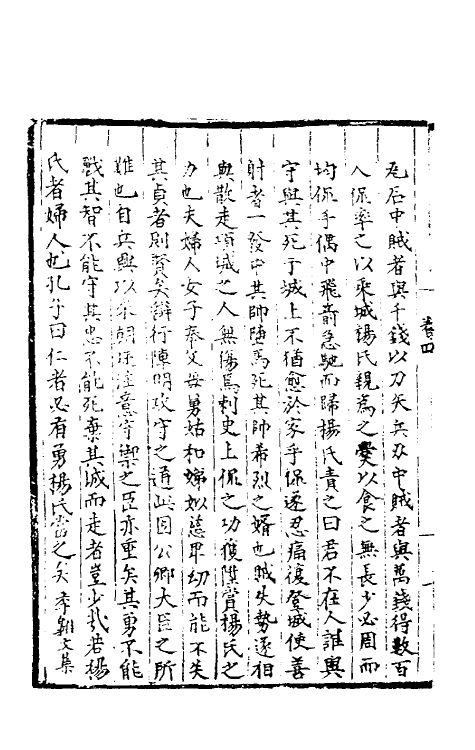 卷四
瓦石中賊者與千錢以刀矢兵刃中賊者與萬錢得數百
人侃率之以乘城楊氏親為之爨以食之無長少必周而
均侃手偶中飛箭急馳而歸楊氏責之曰君不在人誰與
守與其死于城上不猶愈於家乎侃遂忍痛復登城使善
射者一發中其帥墮馬死其帥希烈之婿也賊失勢遂相
與散走項城之人無傷焉刺史上侃之功獲隕賞楊氏之
力也夫婦人女子奉父母舅姑和娣姒慈卑幼而能不失
其貞者則賢矣辨行陣明攻守之道此固公卿大臣之所
難也自兵興以來朝廷注意守禦之臣亦重矣其勇不能
戰其智不能守其忠不能死棄其城而走者豈少哉若楊
氏者婦人也孔子曰仁者必有勇楊氏當之矣李翱文集